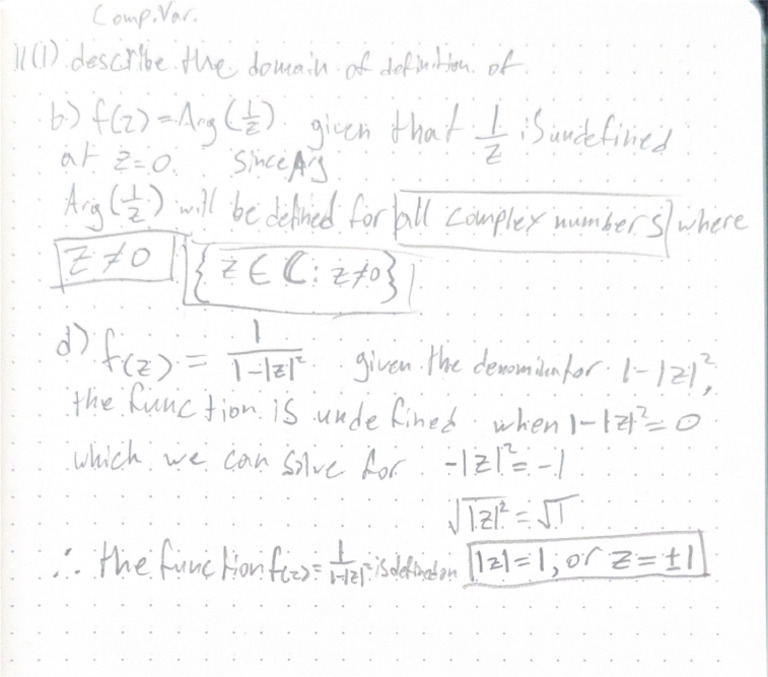 Comp. Var.
11(1) describe the domain of definition of
b) f(z) = Arg(1/z). given that 1/z is undefined
at z=0. since Arg
Arg(1/z) will be defined for all complex numbers where
z ≠ 0 {z ∈ ℂ: z≠0}
d) f(z) = 1/(1-|z|²) given the denominator 1-|z|²,
the function is undefined when 1-|z|²=0
which we can solve for -|z|²=-1
√|z|² = √1
∴ the function f(z) = 1/(1-|z|²) is defined on |z|=1, or z=±1